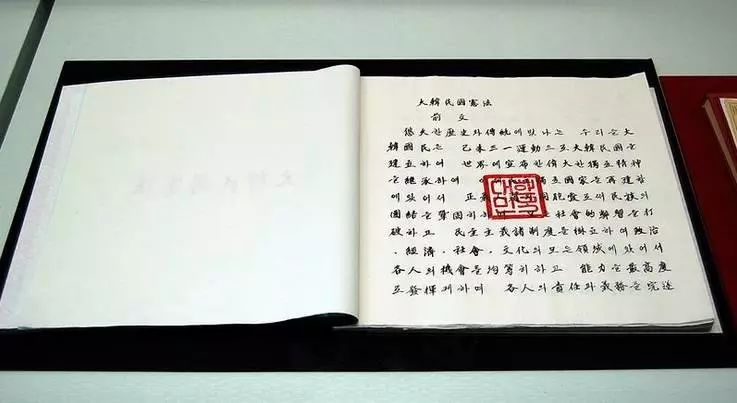 大韓民國憲法
前文
悠久한 歷史와 傳統에 빛나는 우리들 大
韓國民은 己未三一運動으로 大韓民國을
建立하여 世界에 宣布한 偉大한 獨立精神
을 繼承하여 이제 獨立國家를 再建함
에 있어서 正義 同胞愛로써 民族의
團結을 鞏固히하며 모든 社會的弊習을 打
破하고 民主主義諸制度를 樹立하여 政治
, 經濟, 社會, 文化의 모든 領域에 있어서
各人의 機會를 均等히하고 能力을 最高度
로 發揮케하며 各人의 責任과 義務를 完遂